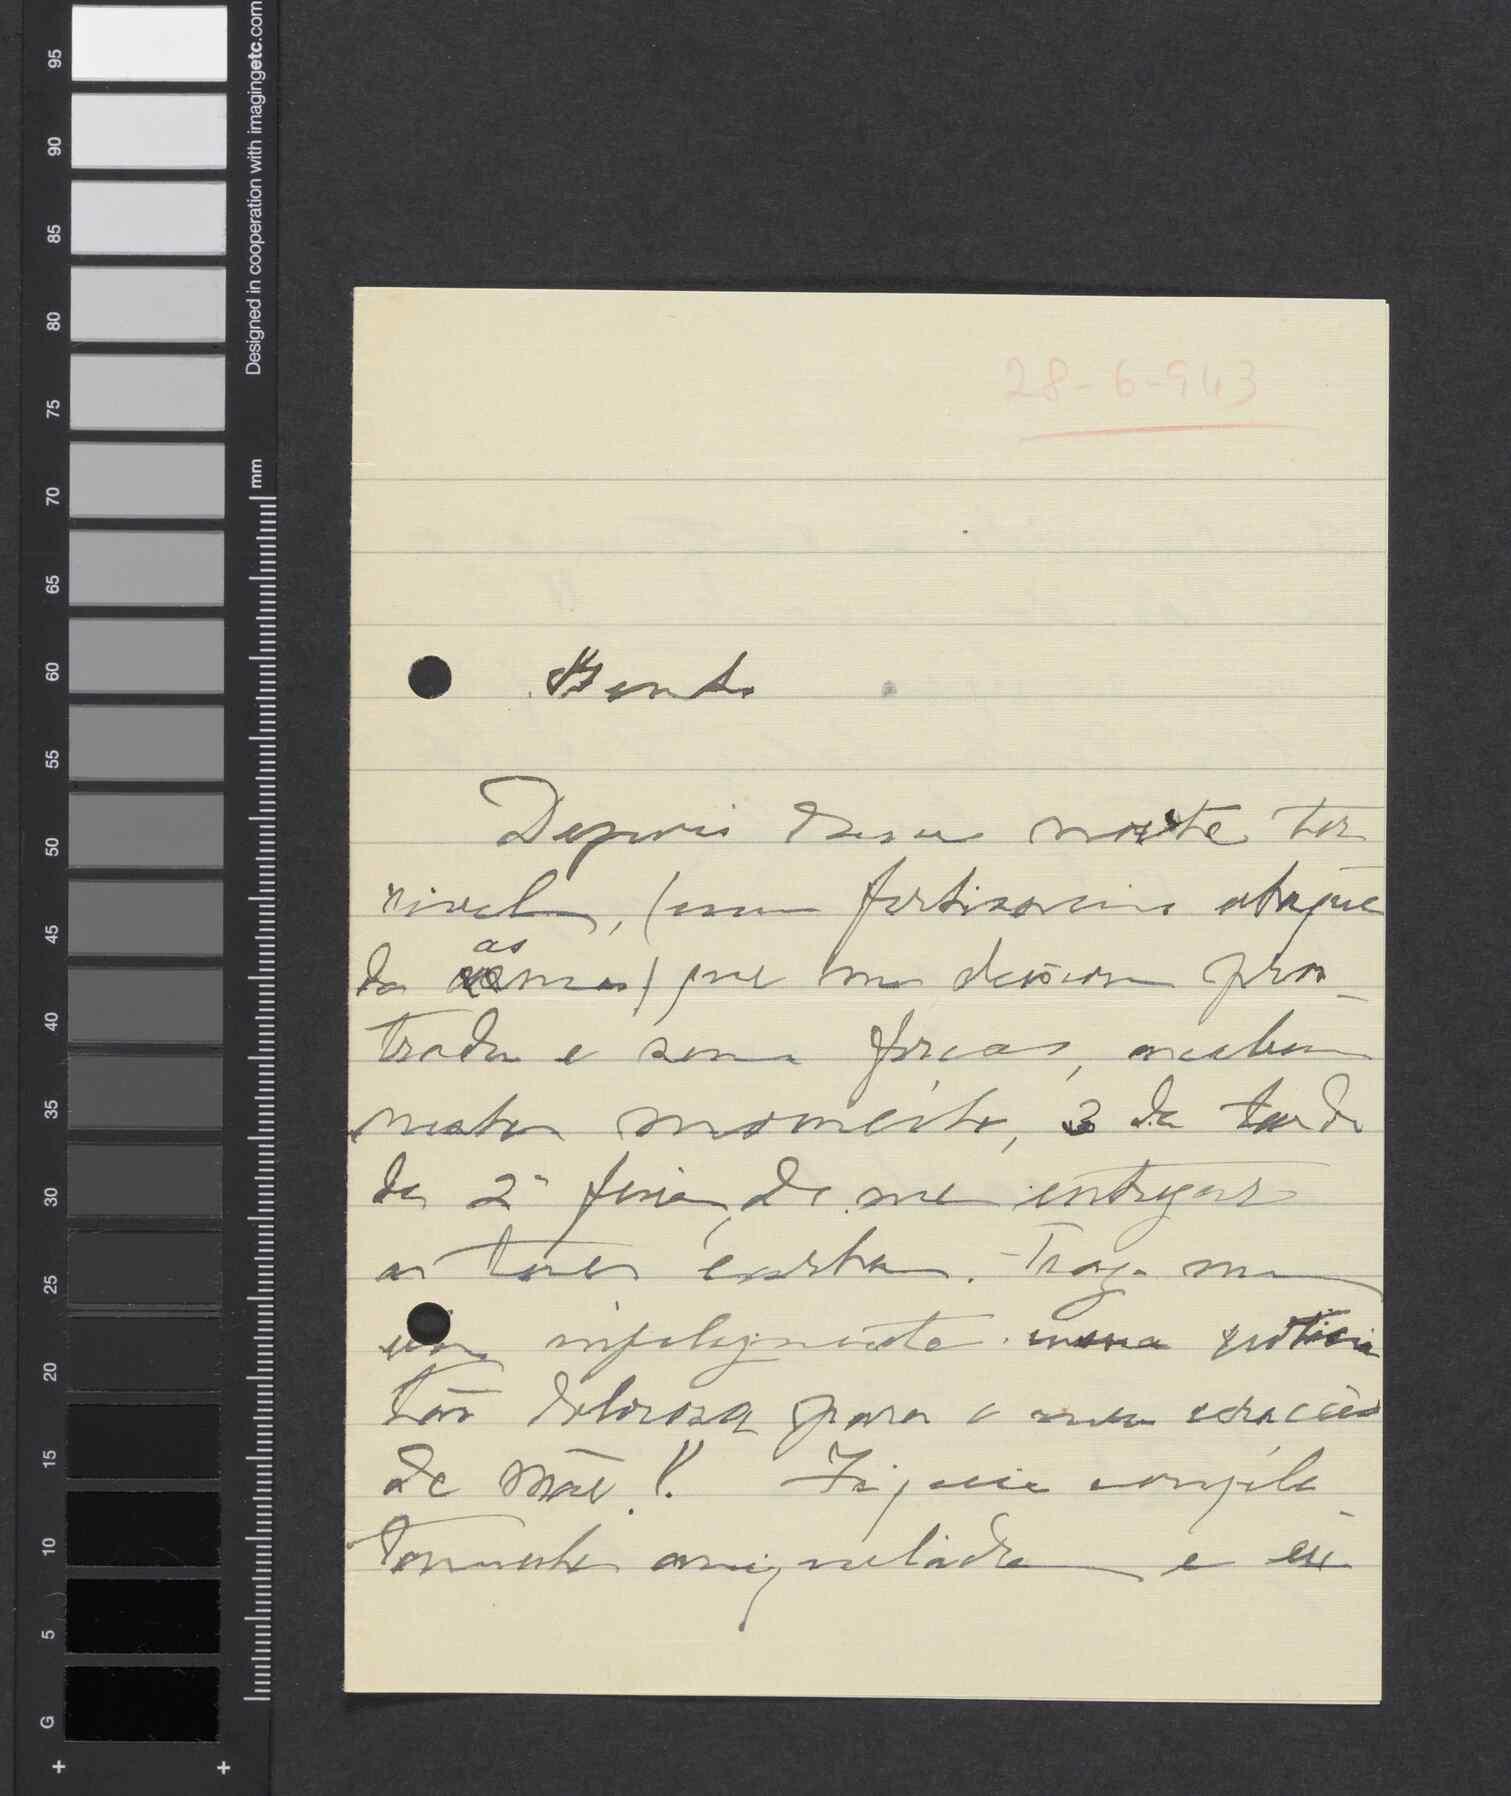 95
90
85
80
75
70
65
60
55
50
45
40
35
30
25
20
15
10
5
G
Designed in cooperation with imagingetc.com
mm
28-6-943
Bento
Depois duma noite ter
rivel, (um fortissimo ataque
da asma) que me deixou pros
trada e sem forças, acabam
neste momento, 3 da tarde
da 2ª feira, de me entregar
a tua carta. Traz-me
ela infelizmente uma noticia
tão dolorosa para o meu coração
de mãe!! Fiquei comple
tamente aniquilada e